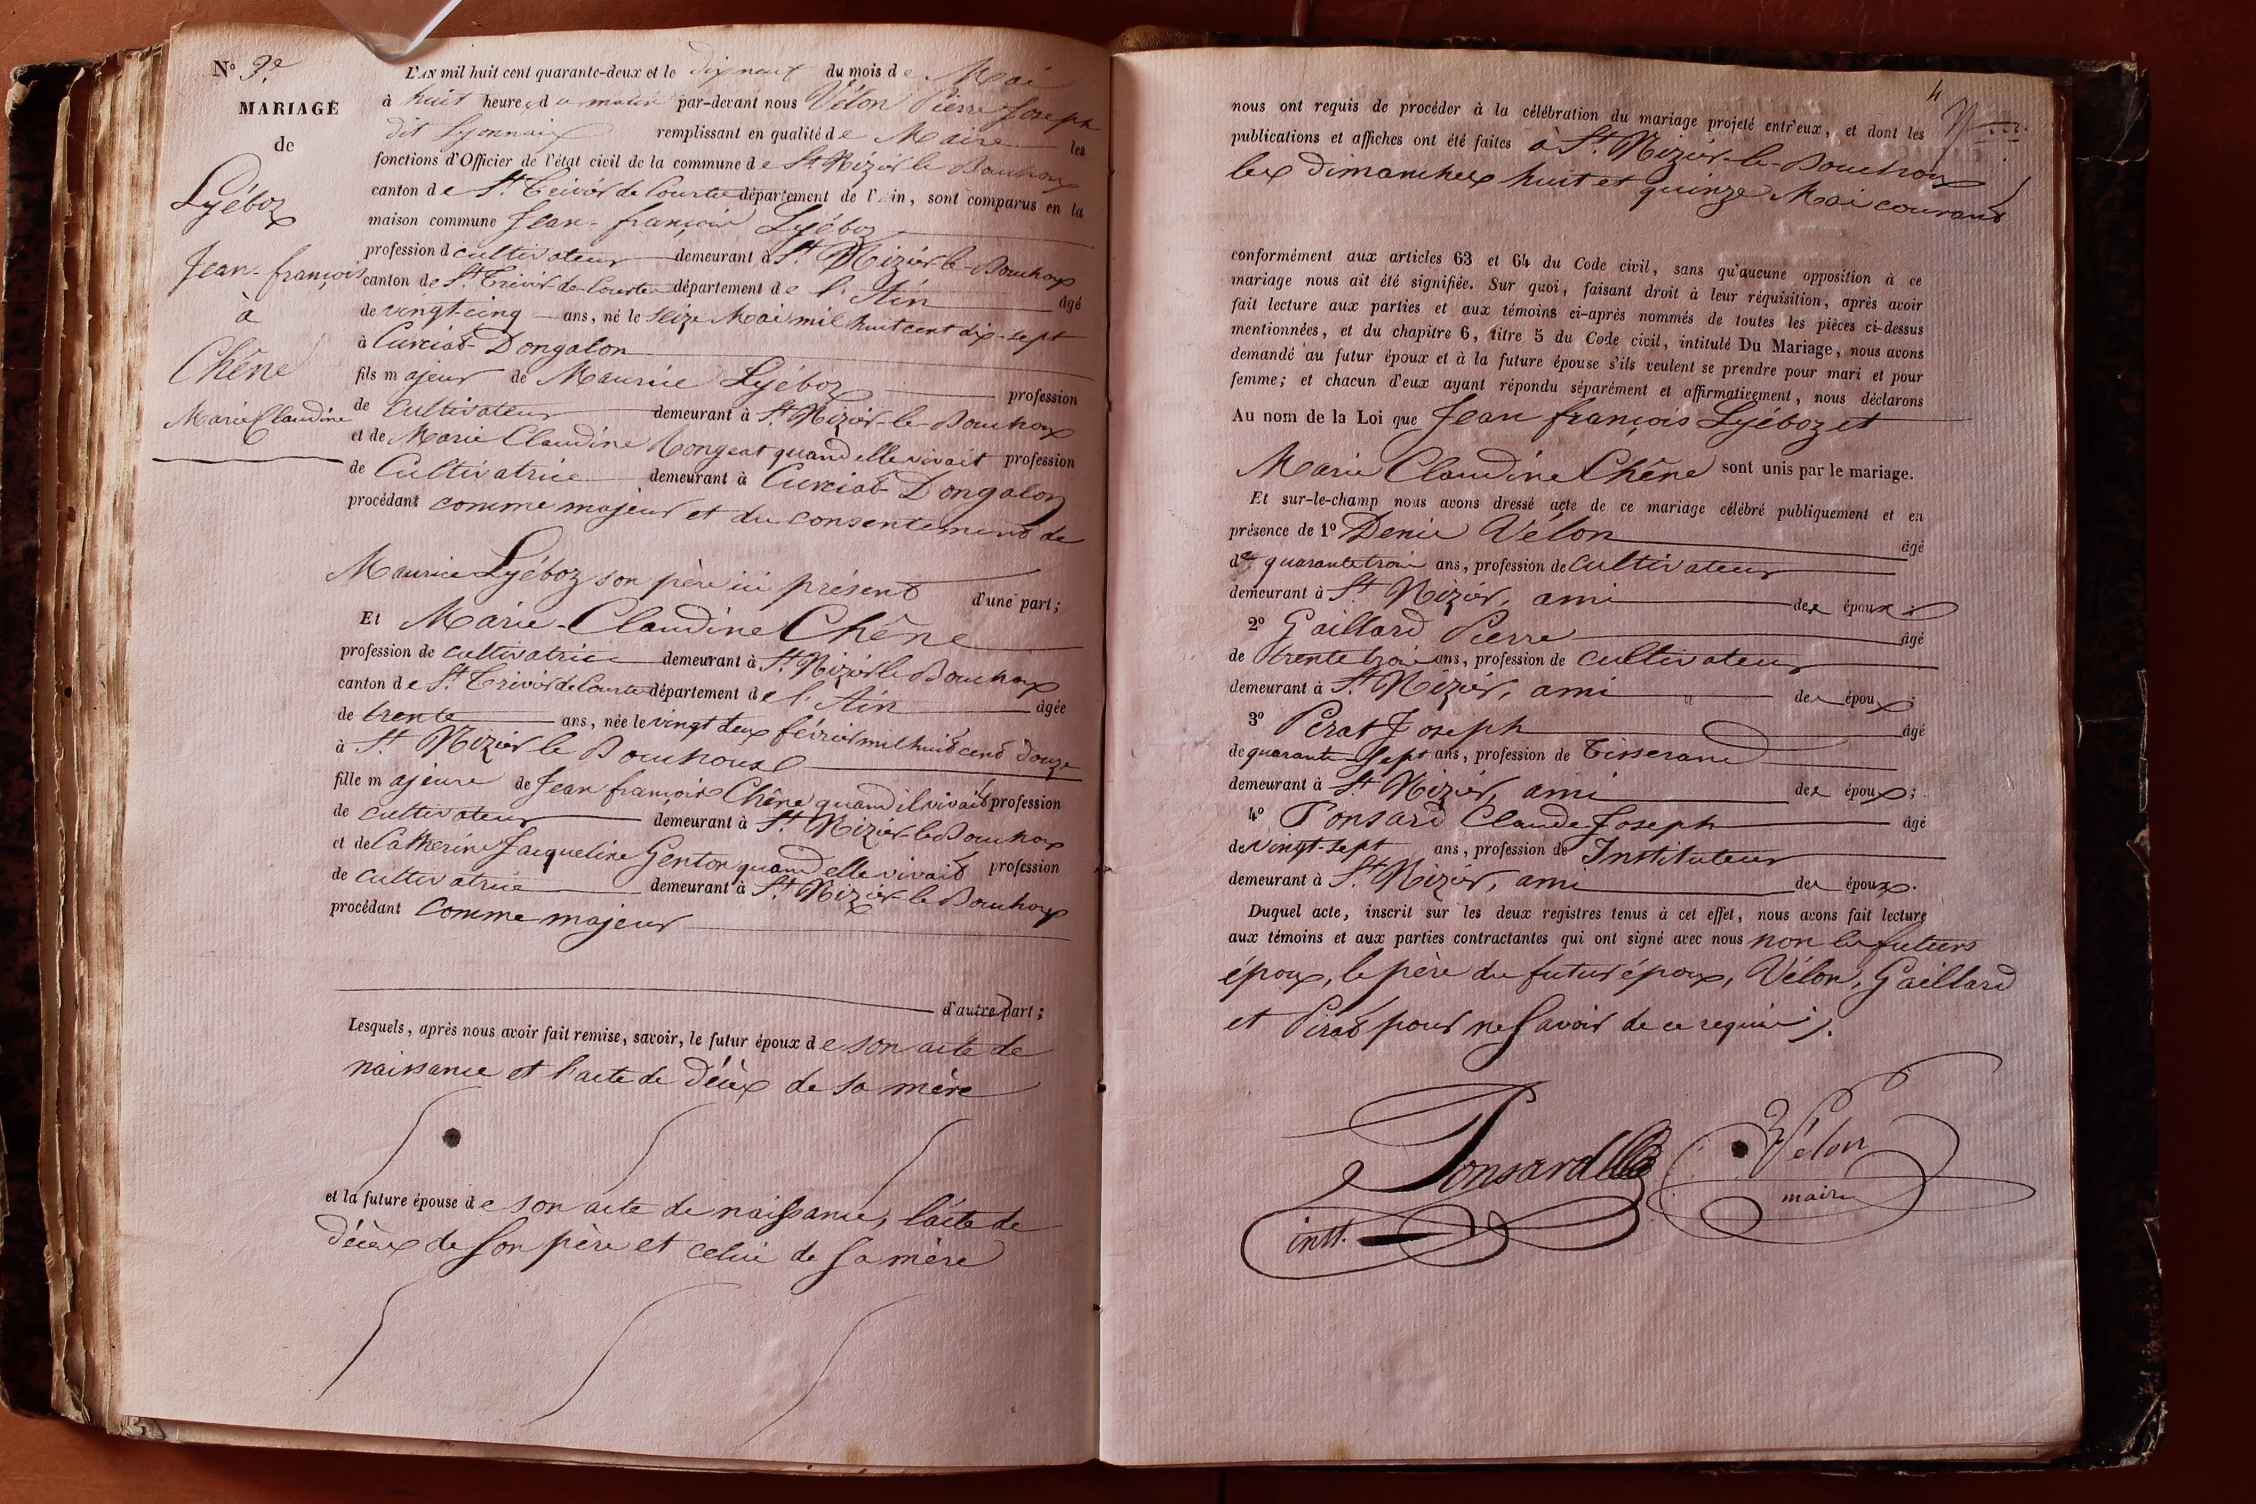 N° 3.e
MARIAGE
de
Lyéboz
Jean-françois
à
Chêne
Marie Claudine
L'AN mil huit cent quarante-deux et le dix neuf du mois de Mai
à huit heures du matin par-devant nous Vélon Pierre Joseph
dit Lyonnais remplissant en qualité de Maire les
fonctions d'Officier de l'état civil de la commune de St Nizier le Bouchoux
canton de St. Trivier de Courtes département de l'Ain, sont comparus en la
maison commune Jean-françois Lyéboz
profession d cultivateur demeurant à St. Nizier le-Bouchoux
canton de St. Trivier de Courtes département de l'Ain âgé
de vingt-cinq ans, né le seize Mai mil huit cent dix-sept
à Curciat-Dongalon
fils majeur de Maurice Lyéboz profession
de cultivateur demeurant à St. Nizier-le-Bouchoux
et de Marie Claudine Mongeat quand elle vivait profession
de Cultivatrice demeurant à Curciat Dongalon
procédant comme majeur et du consentement de
Maurice Lyéboz son père ici présent d'une part;
Et Marie-Claudine Chêne
profession de cultivatrice demeurant à St. Nizier le Bouchoux
canton de St. Trivier de Courtes département de l'Ain âgée
de trente ans, née le vingt deux février mil huit cent douze
à St. Nizier le Bouchoux
fille majeure de Jean françois Chêne quand il vivait profession
de cultivateur demeurant à St. Nizier le Bouchoux
et de Catherine Jacqueline Genton quand elle vivait profession
de cultivatrice demeurant à St. Nizier le Bouchoux
procédant comme majeur
d'autre part;
Lesquels, après nous avoir fait remise, savoir, le futur époux de son acte de
naissance et l'acte de décès de sa mère
et la future épouse de son acte de naissance, l'acte de
décès de son père et celui de sa mère
4
nous ont requis de procéder à la célébration du mariage projeté entr'eux, et dont les
publications et affiches ont été faites à St. Nizier-le-Bouchoux
les dimanches huit et quinze Mai courant
conformément aux articles 63 et 64 du Code civil, sans qu'aucune opposition à ce
mariage nous ait été signifiée. Sur quoi, faisant droit à leur réquisition, après avoir
fait lecture aux parties et aux témoins ci-après nommés de toutes les pièces ci-dessus
mentionnées, et du chapitre 6, titre 5 du Code civil, intitulé Du Mariage, nous avons
demandé au futur époux et à la future épouse s'ils veulent se prendre pour mari et pour
femme; et chacun d'eux ayant répondu séparément et affirmativement, nous déclarons
Au nom de la Loi que Jean françois Lyéboz et
Marie Claudine Chêne sont unis par le mariage.
Et sur-le-champ nous avons dressé acte de ce mariage célébré publiquement et en
présence de 1° Denis Vélon âgé
de quarante trois ans, profession de cultivateur
demeurant à St. Nizier, ami des époux;
2° Gaillard Pierre âgé
de trente trois ans, profession de cultivateur
demeurant à St. Nizier, ami des époux;
3° Pérat Joseph âgé
de quarante sept ans, profession de Tisserand
demeurant à St. Nizier, ami des époux;
4° Ponsard Claude Joseph âgé
de vingt-sept ans, profession de Instituteur
demeurant à St. Nizier, ami des époux.
Duquel acte, inscrit sur les deux registres tenus à cet effet, nous avons fait lecture
aux témoins et aux parties contractantes qui ont signé avec nous non les futurs
époux, le père du futur époux, Vélon, Gaillard
et Pérat pour ne savoir de ce requis.
Ponsard
instt.
Vélon
maire